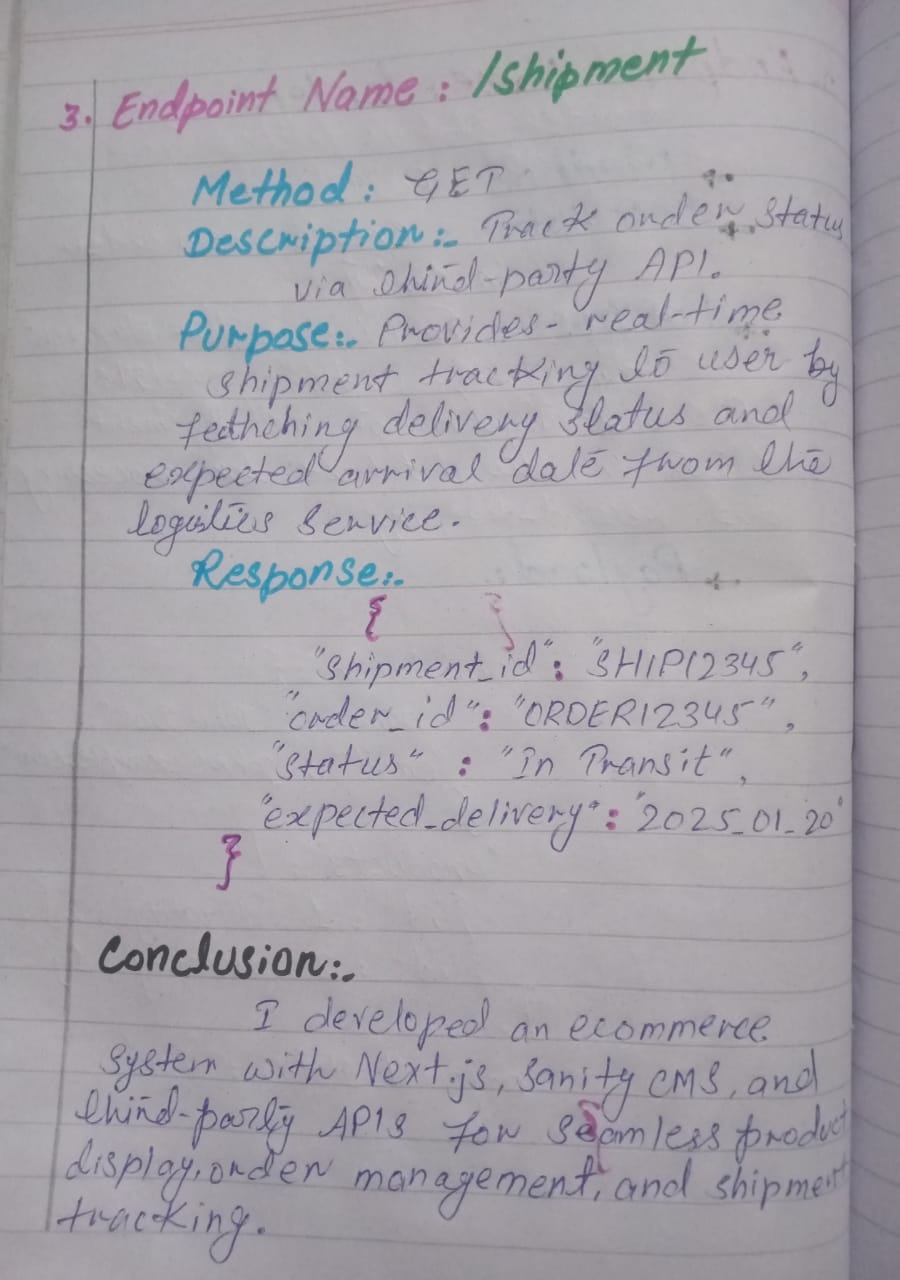 3. Endpoint Name : /shipment
Method : GET
Description :- Track order status
via third-party API.
Purpose :- Provides - real-time
shipment tracking to user by
fecthching delivery status and
expected arrival date from the
logistics service.
Response :-
{ }
"shipment_id" : "SHIP12345",
"order_id" : "ORDER12345",
"status" : "In Transit",
"expected_delivery" : "2025_01_20"
}
Conclusion :-
I developed an ecommerce
system with Next.js, Sanity CMS, and
third-party APIs for seamless product
display, order management, and shipment
tracking.